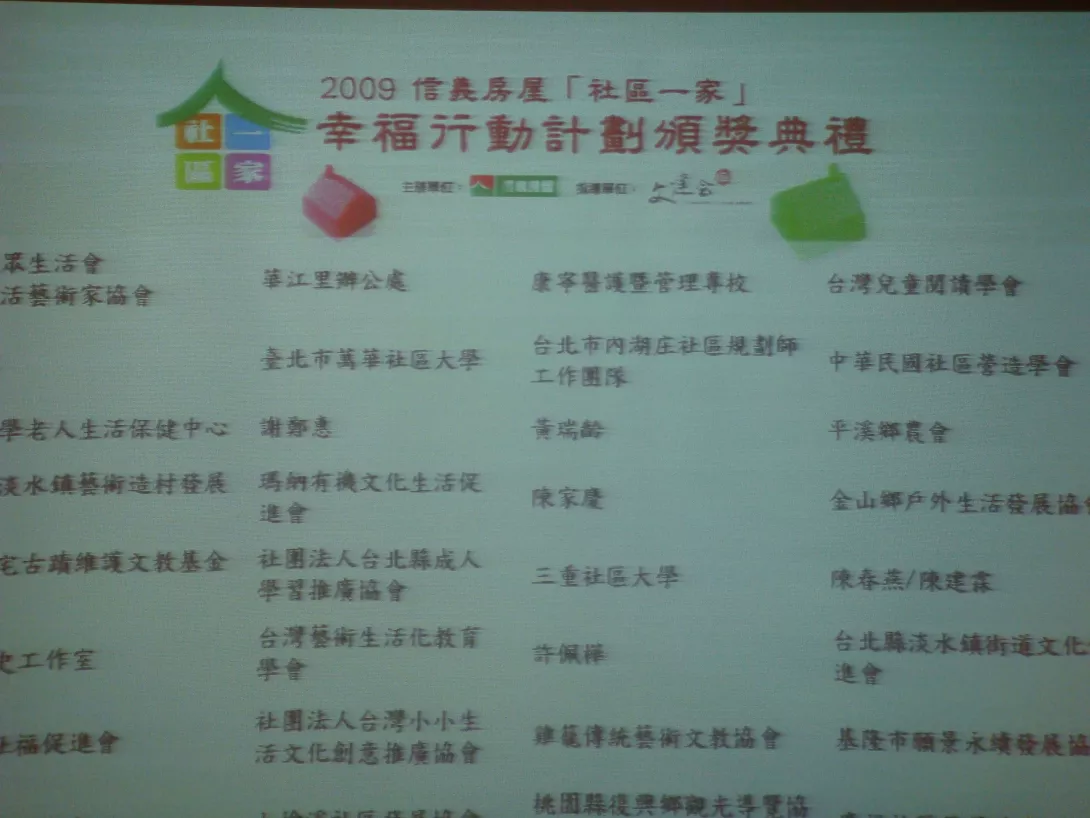 2009 信義房屋「社區一家」
幸福行動計劃頒獎典禮
社一
區家
主辦單位： 信義房屋 指導單位： 文建會
眾生活會
活藝術家協會
華江里辦公處
康寧醫護暨管理專校
台灣兒童閱讀學會
臺北市萬華社區大學
台北市內湖庄社區規劃師
工作團隊
中華民國社區營造學會
學老人生活保健中心
謝鄭惠
黃瑞齡
平溪鄉農會
淡水鎮藝術造村發展
瑪納有機文化生活促
進會
陳家慶
金山鄉戶外生活發展協會
宅古蹟維護文教基金
社團法人台北縣成人
學習推廣協會
三重社區大學
陳春燕/陳建霖
史工作室
台灣藝術生活化教育
學會
許佩樺
台北縣淡水鎮街道文化
進會
社福促進會
社團法人台灣小小生
活文化創意推廣協會
雞籠傳統藝術文教協會
基隆市願景永續發展協
社區發展協會
桃園縣復興鄉觀光導覽協